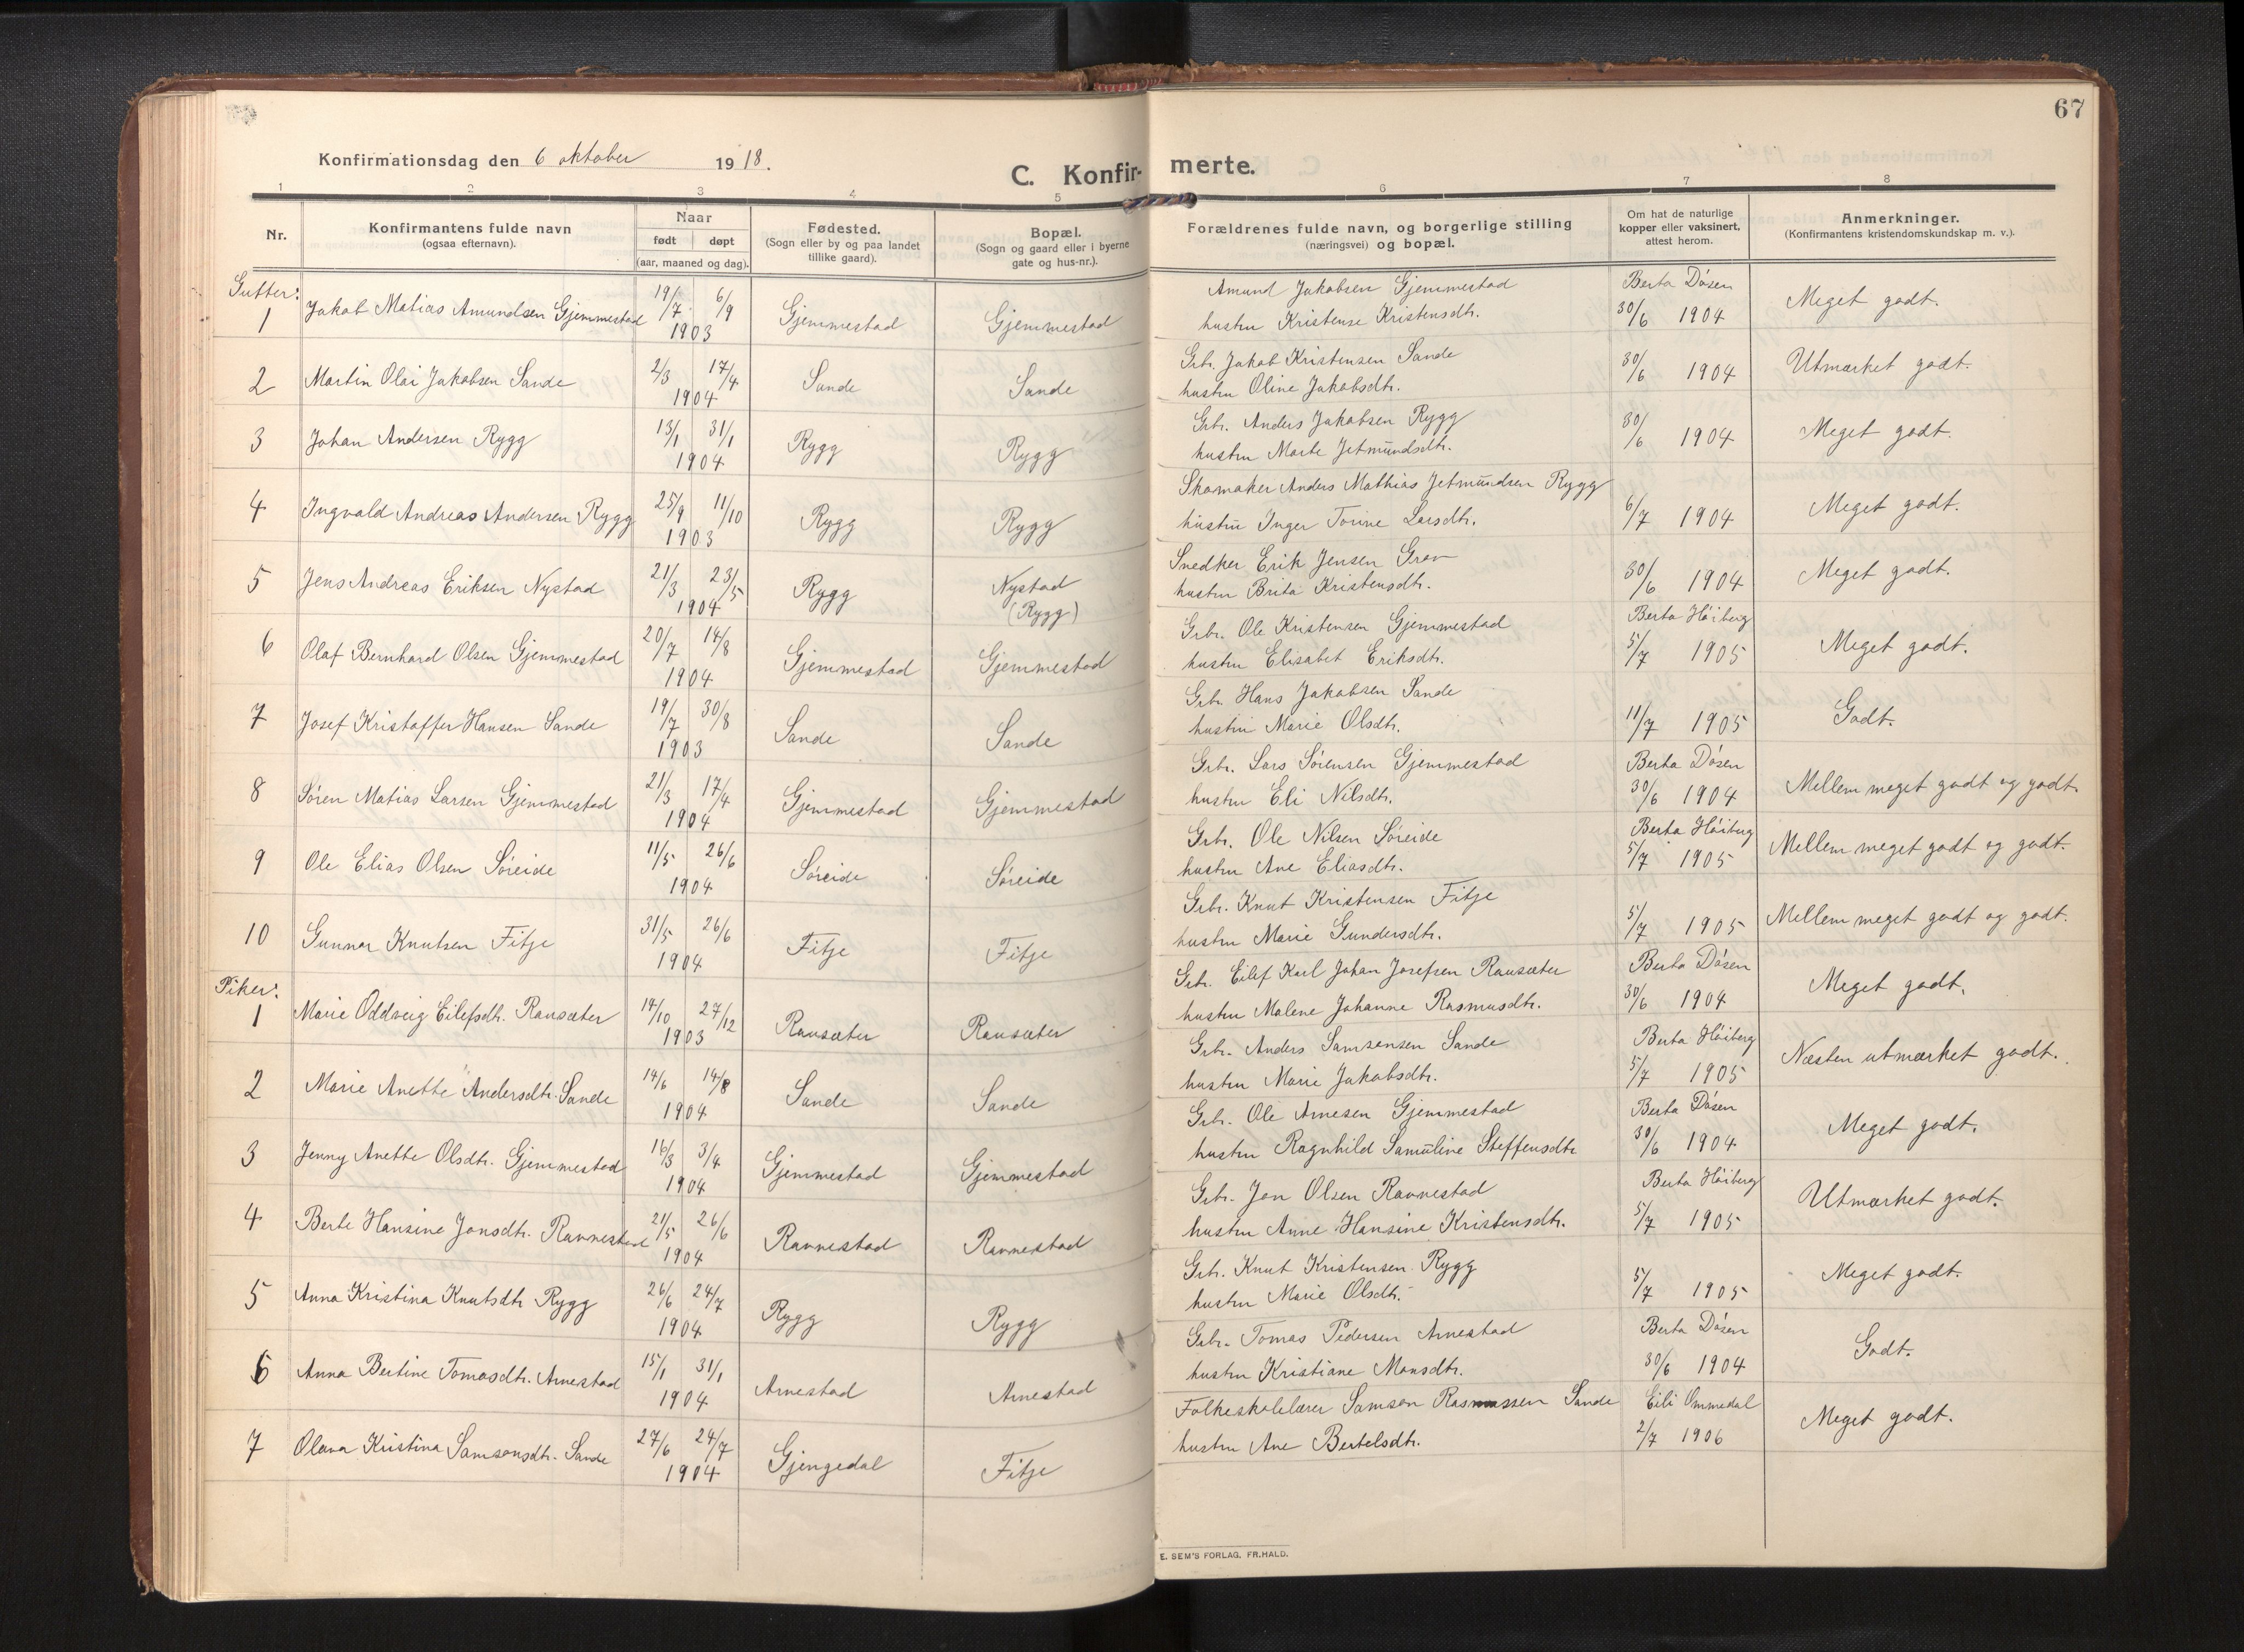 67
Konfirmationsdag den 6 oktober 1918.
C. Konfirmerte.
1 2 3 4 5 6 7 8
Nr.
Konfirmantens fulde navn
(ogsaa efternavn).
Naar
født døpt
(aar, maaned og dag).
Fødested.
(Sogn eller by og paa landet
tillike gaard).
Bopæl.
(Sogn og gaard eller i byerne
gate og hus-nr.).
Forældrenes fulde navn, og borgerlige stilling
(næringsvei) og bopæl.
Om hat de naturlige
kopper eller vaksinert,
attest herom.
Anmerkninger.
(Konfirmantens kristendomskundskap m. v.).
Gutter:
1 Jakob Matias Amundsen Gjemmestad 19/7 6/9 1903 Gjemmestad Gjemmestad
Amund Jakobsen Gjemmestad
hustru Kristense Kristensdtr.
Berta Døsen
30/6 1904 Meget godt.
2 Martin Olai Jakobsen Sande 2/3 17/4 1904 Sande Sande
Grbr. Jakob Kristensen Sande
hustru Oline Jakobsdtr.
30/6 1904 Utmærket godt.
3 Johan Andersen Rygg 13/1 31/1 1904 Rygg Rygg
Grbr. Anders Jakobsen Rygg
hustru Marte Jetmundsdtr.
30/6 1904 Meget godt.
4 Ingvald Andreas Andersen Rygg 25/9 11/10 1903 Rygg Rygg
Skomaker Anders Mathias Jetmundsen Rygg
hustru Inger Torine Larsdtr.
6/7 1904 Meget godt.
5 Jens Andreas Eriksen Nystad 21/3 23/5 1904 Rygg Nystad
(Rygg)
Snedker Erik Jensen Grov
hustru Brita Kristensdtr.
30/6 1904 Meget godt.
6 Olaf Bernhard Olsen Gjemmestad 20/7 14/8 1904 Gjemmestad Gjemmestad
Grbr. Ole Kristensen Gjemmestad
hustru Elisabet Eriksdtr.
Berta Høiberg
5/7 1905 Meget godt.
7 Josef Kristoffer Hansen Sande 19/7 30/8 1903 Sande Sande
Grbr. Hans Jakobsen Sande
hustru Marie Olsdtr.
11/7 1905 Godt.
8 Søren Matias Larsen Gjemmestad 21/3 17/4 1904 Gjemmestad Gjemmestad
Grbr. Lars Sørensen Gjemmestad
hustru Eli Nilsdtr.
Berta Døsen
30/6 1904 Mellem meget godt og godt.
9 Ole Elias Olsen Søreide 11/5 26/6 1904 Søreide Søreide
Grbr. Ole Nilsen Søreide
hustru Ane Eliasdtr.
Berta Høiberg
5/7 1905 Mellem meget godt og godt.
10 Gunnar Knutsen Fitje 31/5 26/6 1904 Fitje Fitje
Grbr. Knut Kristensen Fitje
hustru Marie Gundersdtr.
5/7 1905 Mellem meget godt og godt.
Piker:
1 Marie Oddveig Eilefsdtr. Ransæter 14/10 27/12 1903 Ransæter Ransæter
Grbr. Eilef Karl Johan Josefsen Ransæter
hustru Malene Johanne Rasmusdtr.
Berta Døsen
30/6 1904 Meget godt.
2 Marie Anette Andersdtr. Sande 14/6 14/8 1904 Sande Sande
Grbr. Anders Samsonsen Sande
hustru Marie Jakobsdtr.
Berta Høiberg
5/7 1905 Næsten utmærket godt.
3 Jenny Anette Olsdtr. Gjemmestad 16/3 3/4 1904 Gjemmestad Gjemmestad
Grbr. Ole Arnesen Gjemmestad
hustru Ragnhild Samuline Steffensdtr
Berta Døsen
30/6 1904 Meget godt.
4 Berte Hansine Jonsdtr. Ravnestad 21/5 26/6 1904 Ravnestad Ravnestad
Grbr. Jon Olsen Ravnestad
hustru Anne Hansine Kristensdtr.
Berta Høiberg
5/7 1905 Utmærket godt.
5 Anna Kristina Knutsdtr Rygg 26/6 24/7 1904 Rygg Rygg
Grbr. Knut Kristensen Rygg
hustru Marie Olsdtr.
5/7 1905 Meget godt.
6 Anna Bertine Tomasdtr. Arnestad 15/1 31/1 1904 Arnestad Arnestad
Grbr. Tomas Pedersen Arnestad
hustru Kristiane Monsdtr.
Berta Døsen
30/6 1904 Godt.
7 Olava Kristina Samsonsdtr. Sande 27/6 24/7 1904 Gjengedal Fitje
Folkeskolelærer Samson Rasmussen Sande
hustru Ane Bertelsdtr.
Eili Ommedal
2/7 1906 Meget godt.
E. SEM'S FORLAG, FR.HALD.